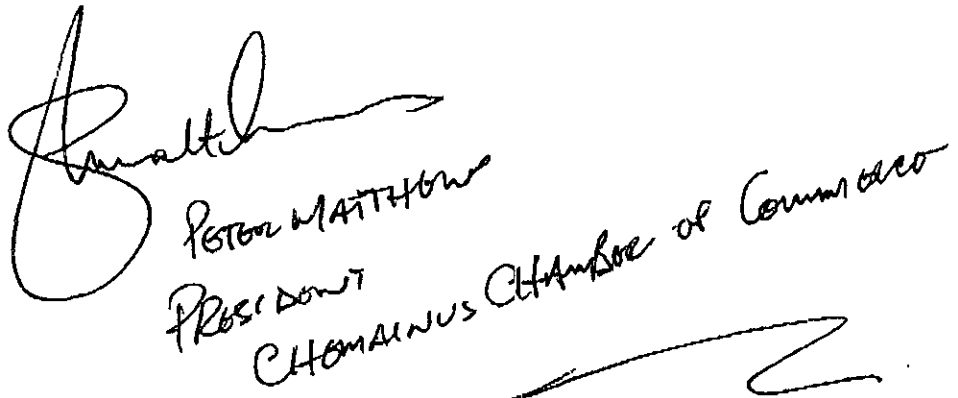 PETER MATTHEWS
PRESIDENT
CHEMAINUS CHAMBER OF COMMERCE